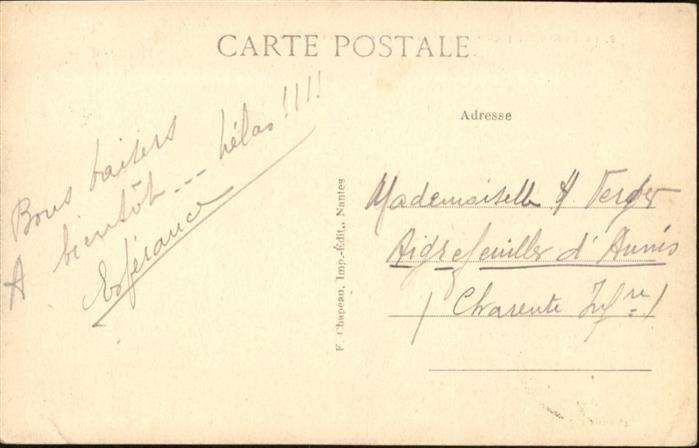 CARTE POSTALE
Bons baisers
A bientôt... hélas!!!!
Espérance
F. Chapeau, Imp.-Édit., Nantes
Adresse
Mademoiselle A Verger
Aigrefeuille d'Aunis
(Charente Infre)